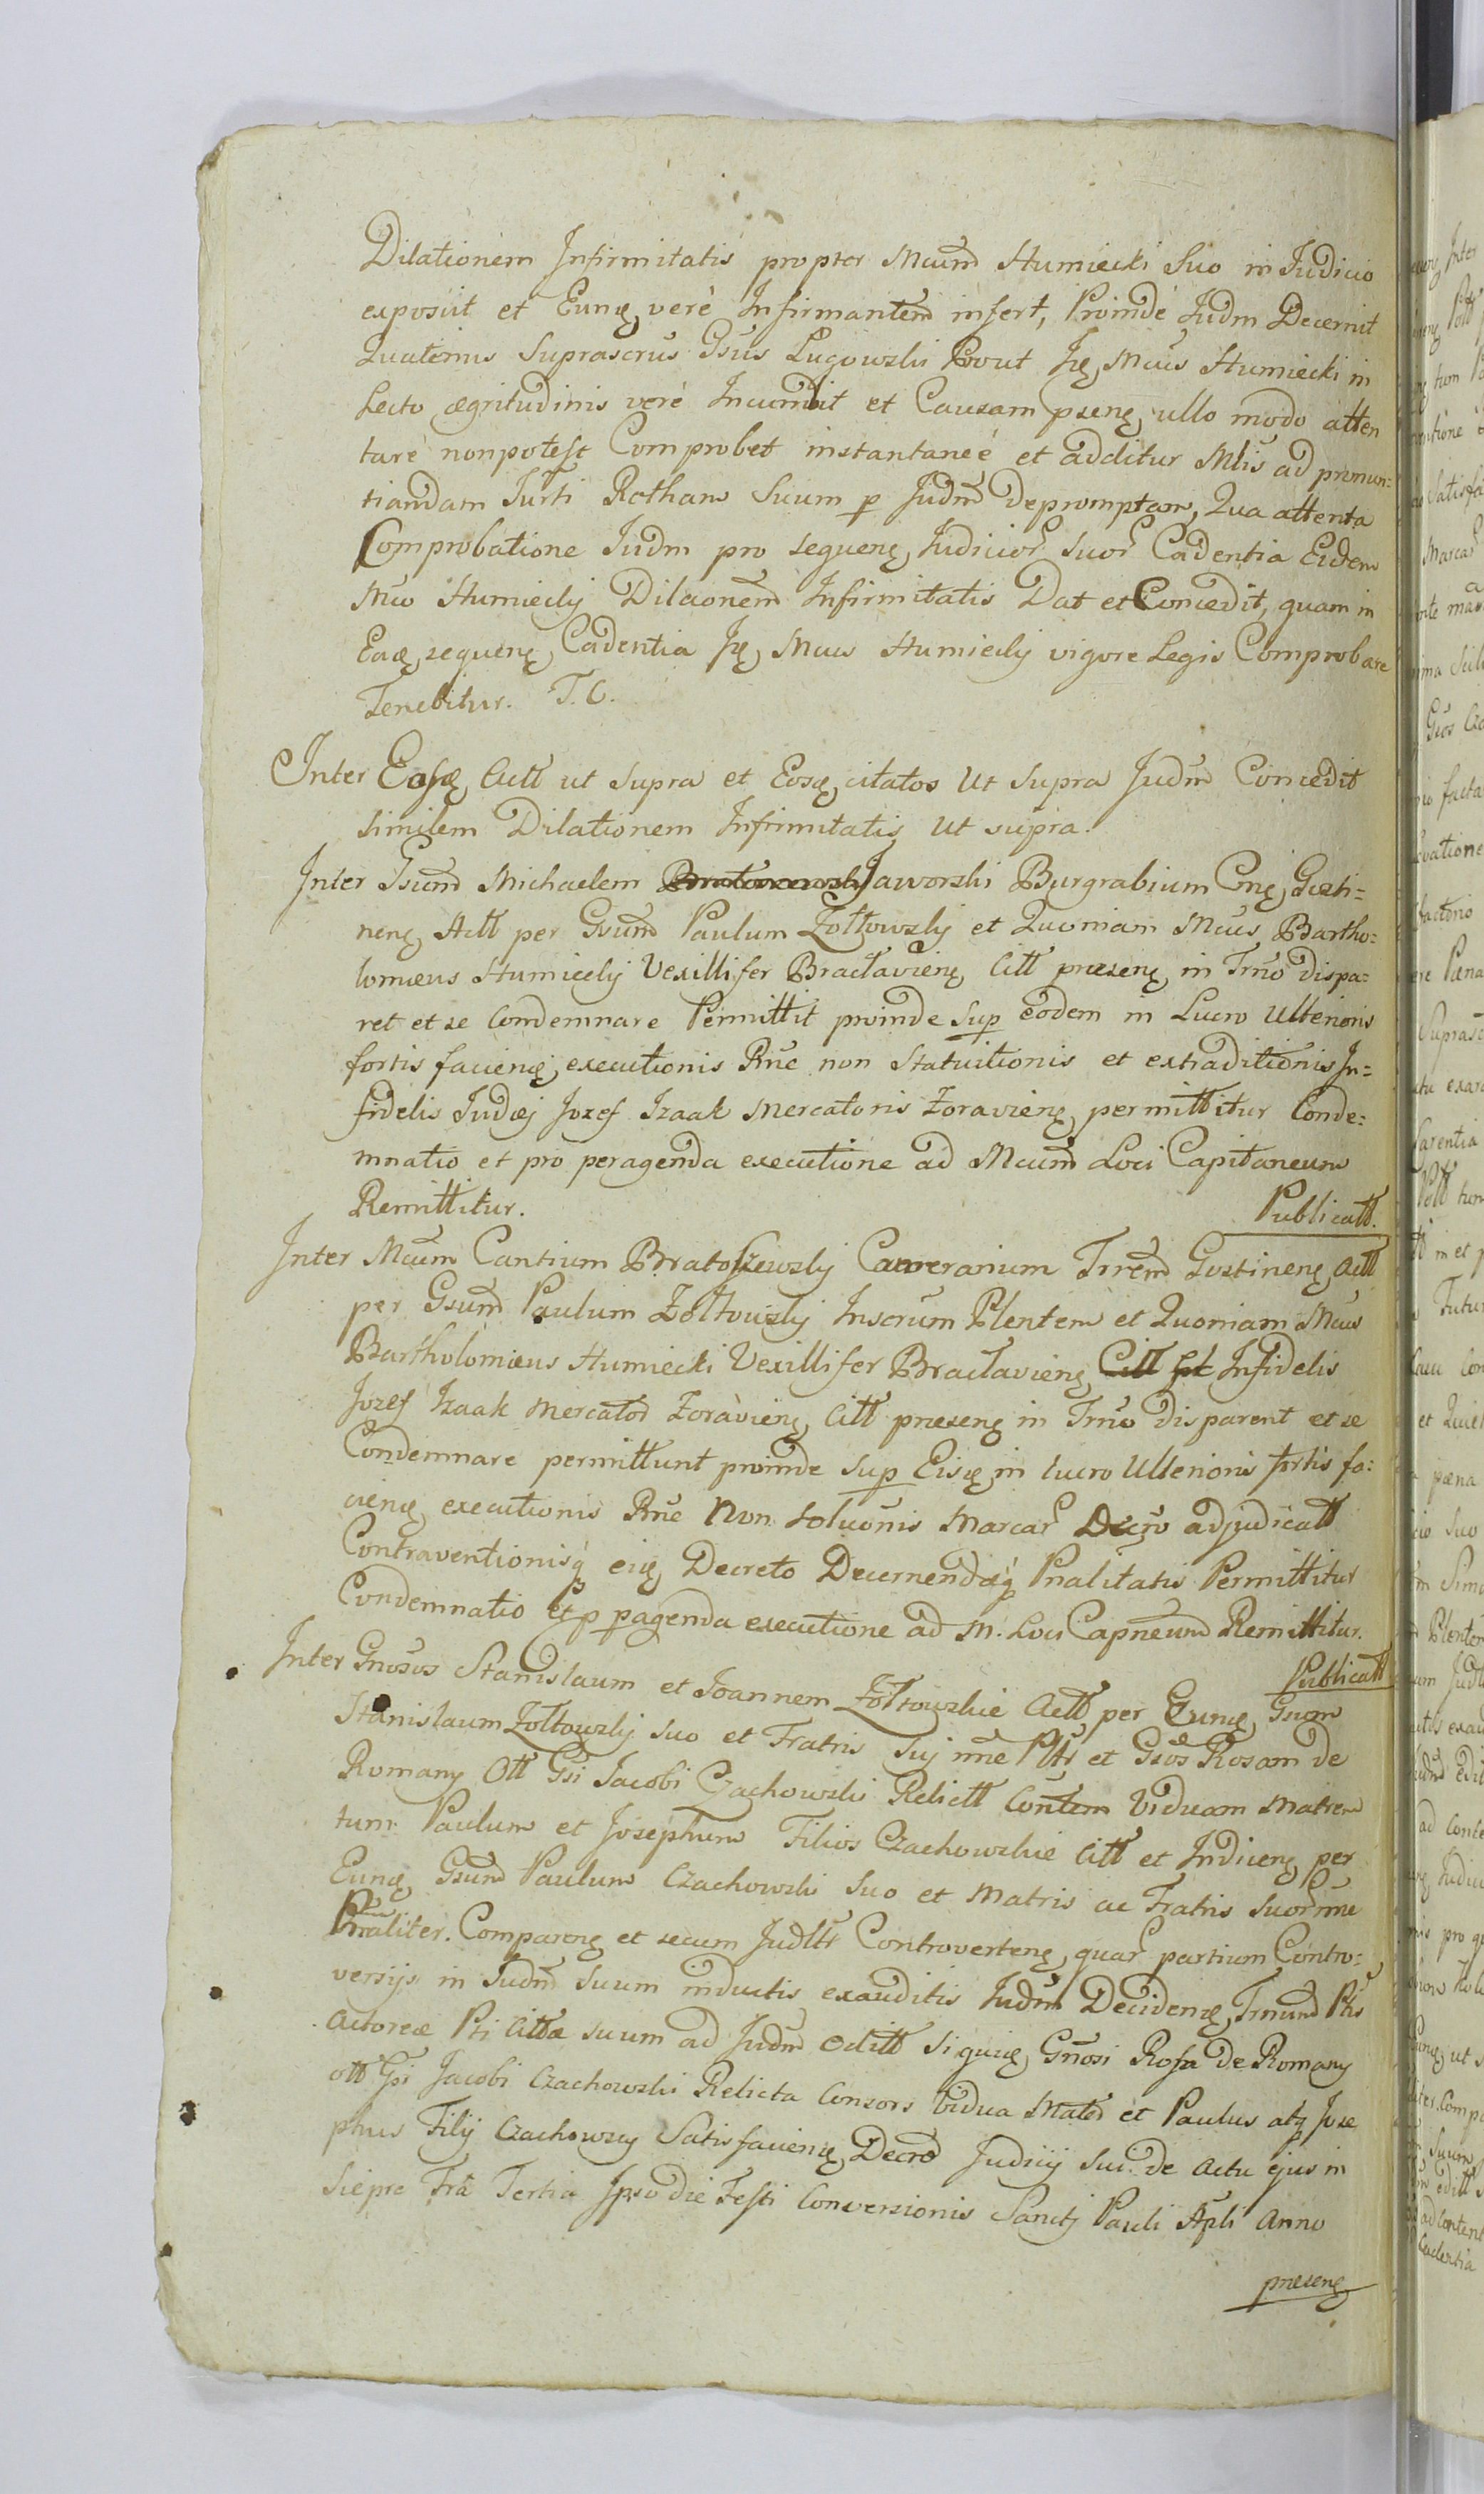 Dilationem Infirmitatis propter Mcum̃ Humiecki suo in Judicio
exposuit et Eunę verè Infirmantem̃ infert, Proinde Judm Decernit
Quatenus Suprascrus Gsus Lugowski Prout Ję Mcus Humiecki in
Lecto ægritudinis verè Incumbit et Causam psenę ullo modo atten
tare nonpotest Comprobet instantaneè et additur Mlis ad pronun:
tiandam Jurti Rotham Suum p Judm̃ depromptam, Qua attenta
Comprobatione Judm pro sequenę Judicior̃ suor̃ Cadentia Eidem
Mco Humiecky Dilaonem̃ Infirmitatis Dat et Concedit, quam in
Eaę sequenę Cadentia Ję Mcus Humiecky vigore Legis Comprobare
Tenebitur. T. C.
Inter Eosę Actt ut supra et Eosę citatos Ut supra Judm̃ Concedit
similem Dilationem Infirmitatis Ut supra.
Inter Gsum̃ Michaelem Jaworski Burgrabium Cnę Gosti=
nenę Actt per Gsum̃ Paulum Żołtowsky et Quoniam Mcus Bartho:
lomæus Humiecky Vexillifer Bracłavienę Citt præsenę in Trno dispa:
ret et se Condemnare Permittit proinde sup eodem in Lucro Ulterioris
fortis facienę executionis Rne non Statuitionis et extraditionis In=
fidelis Judæj Jozef Izaak Mercatoris Żoravienę permittitur Conde:
mnatio et pro peragenda executione ad Mcum̃ Loci Capitaneum
Remittitur. Publicatt.
Inter Mcum Cantium Bratoszewsky Camerarium Trrem̃ Gostinenę Actt
per Gsum̃ Paulum Żołtowsky Inscrum Plentem et Quoniam Mcus
Bartholomæus Humiecki Vexillifer Bracłavienę Citt et Infidelis
Jozef Izaak Mercator Żoravienę Citt præsenę in Trno disparent et se
Condemnare permittunt proinde sup Eisę in lucro Ulterioris fortis fa:
cienę executionis Rne Non soluonis Marcar̃ Decro adjudicatt
Contraventionisq̃ eię Decreto Decernendæq̃ Pnalitatis Permittitur
Condemnatio et p pagenda executione ad M. Loci Capneum̃ Remittitur.
Publicatt
Inter Gnosos Stanislaum et Joannem Żołtowskie Actt per Eunę Gsum
Stanislaum Żołtowsky suo et Fratris Suj nne Pltr et Gsos Rosam de
Romany Ott Gsi Jacobi Czachowski Relictt Contem Viduam Matrem
tum Paulum et Josephum Filios Czachowskie Citt et Indivenę per
Eunę Gsum̃ Paulum Czachowski Suo et Matris ac Fratris Suor̃ nne
Pnaliter. Comparenę et secum Judltr Controvertenę, quar̃ partium Contro:
versijs in Judm̃ suum inductis exauditis Judm̃ Decidenę Trnum̃ Ptis
Actoreæ Pti Cittæ suum ad Judm̃ editt siquię Gnosi Rosa De Romany
ott Gsi Jacobi Czachowski Relicta Consors Vidua Mater et Paulus atq̃ Jose
phus Filij Czachowscy Satisfacienę Decro Judicij Sui de Actu ejus in
Sierpc Fria Tertia Ipso die Festi Conversionis Sancti Pauli Apli Anno
præsenę